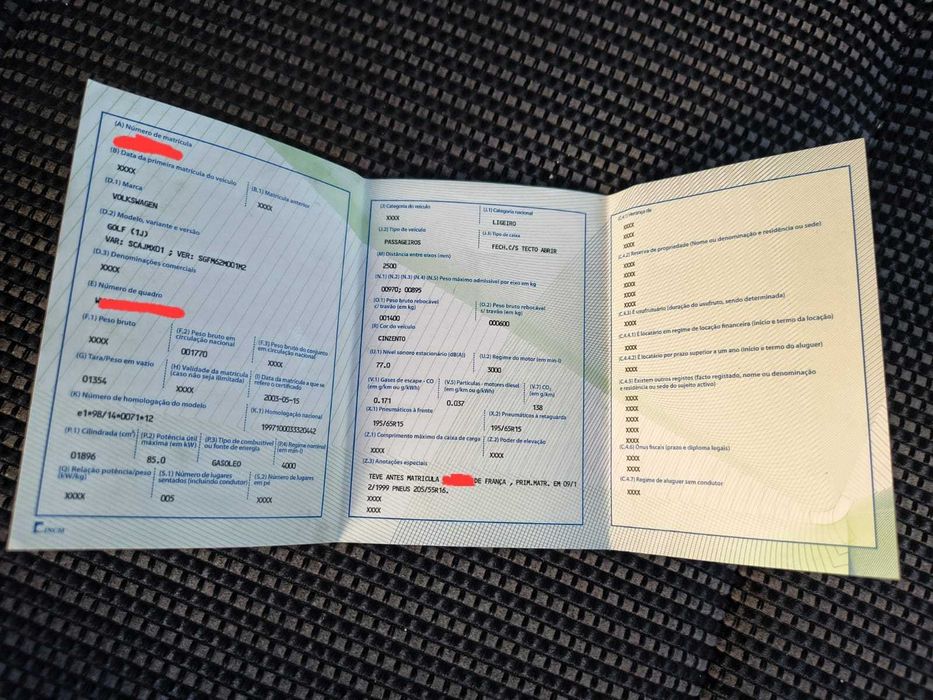 (A) Número de matrícula
(B) Data da primeira matrícula do veículo
XXXX
(B.1) Matrícula anterior
XXXX
(D.1) Marca
VOLKSWAGEN
(D.2) Modelo, variante e versão
GOLF (1J)
VAR: SCAJMXD1 ; VER: SGFM62M001M2
(D.3) Denominações comerciais
XXXX
(E) Número de quadro
(F.1) Peso bruto
XXXX
(F.2) Peso bruto em circulação nacional
001770
(F.3) Peso bruto do conjunto em circulação nacional
XXXX
(G) Tara/Peso em vazio
01354
(H) Validade da matrícula (caso não seja ilimitada)
XXXX
(I) Data da matrícula a que se refere o certificado
2003-05-15
(K) Número de homologação do modelo
e1*98/14*0071*12
(K.1) Homologação nacional
1997100033320442
(P.1) Cilindrada (cm³)
01896
(P.2) Potência útil máxima (em kW)
85.0
(P.3) Tipo de combustível ou fonte de energia
GASOLEO
(P.4) Regime nominal (em min-1)
4000
(Q) Relação potência/peso (kW/kg)
XXXX
(S.1) Número de lugares sentados (incluindo condutor)
005
(S.2) Número de lugares em pé
XXXX
INCM
(J) Categoria do veículo
XXXX
(J.1) Categoria nacional
LIGEIRO
(J.2) Tipo de veículo
PASSAGEIROS
(J.3) Tipo de caixa
FECH.C/S TECTO ABRIR
(M) Distância entre eixos (mm)
2500
(N.1) (N.2) (N.3) (N.4) (N.5) Peso máximo admissível por eixo em kg
00970; 00895
(O.1) Peso bruto rebocável c/ travão (em kg)
001400
(O.2) Peso bruto rebocável s/ travão (em kg)
000600
(R) Cor do veículo
CINZENTO
(U.1) Nível sonoro estacionário (dB(A))
77.0
(U.2) Regime do motor (em min-1)
3000
(V.1) Gases de escape - CO (em g/km ou g/kWh)
0.171
(V.5) Partículas - motores diesel (em g/km ou g/kWh)
0.037
(V.7) CO₂ (em g/km)
138
(X.1) Pneumáticos à frente
195/65R15
(X.2) Pneumáticos à retaguarda
195/65R15
(Z.1) Comprimento máximo da caixa de carga
XXXX
(Z.2) Poder de elevação
XXXX
(Z.3) Anotações especiais
TEVE ANTES MATRICULA DE FRANÇA , PRIM.MATR. EM 09/1
2/1999 PNEUS 205/55R16.
XXXX
XXXX
(C.4.1) Herança de
XXXX
XXXX
XXXX
(C.4.2) Reserva de propriedade (Nome ou denominação e residência ou sede)
XXXX
XXXX
XXXX
XXXX
(C.4.3) É usufrutuário (duração do usufruto, sendo determinada)
XXXX
(C.4.4.1) É locatário em regime de locação financeira (início e termo da locação)
XXXX
(C.4.4.2) É locatário por prazo superior a um ano (início e termo do aluguer)
XXXX
(C.4.5) Existem outros registos (facto registado, nome ou denominação
e residência ou sede do sujeito activo)
XXXX
XXXX
XXXX
XXXX
XXXX
(C.4.6) Ónus fiscais (prazo e diploma legais)
XXXX
XXXX
(C.4.7) Regime de aluguer sem condutor
XXXX